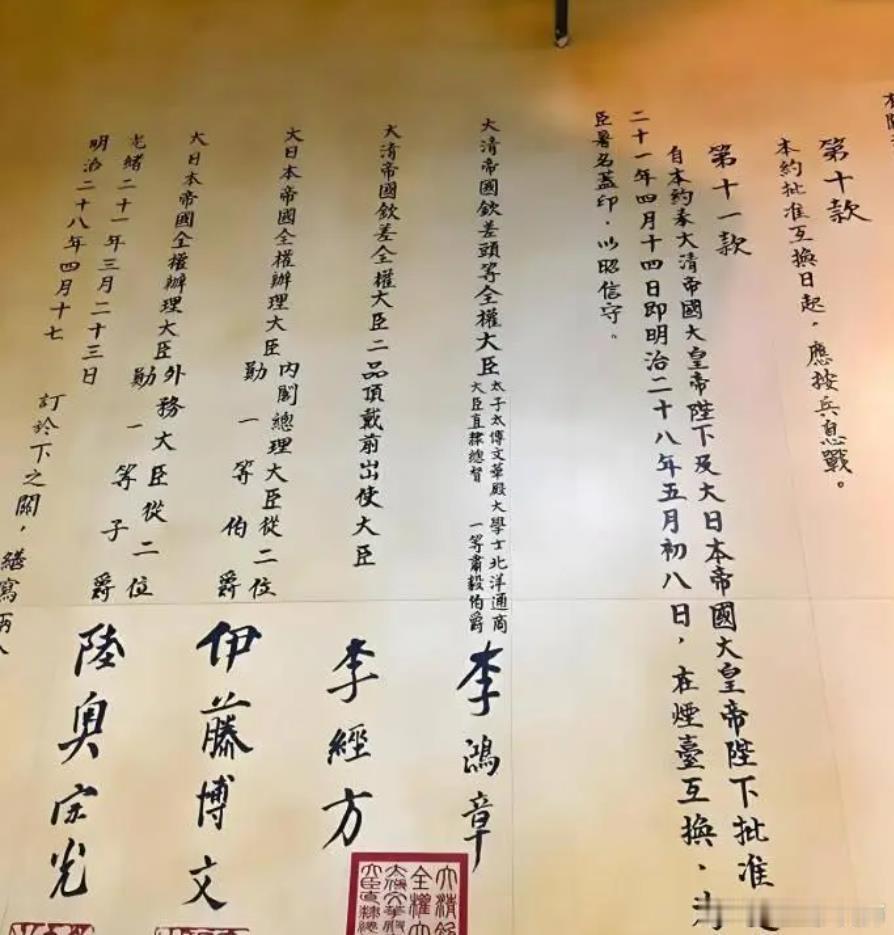 第十款
本約批准互換日起，應按兵息戰。
第十一款
自本約奉大清帝國大皇帝陛下及大日本帝國大皇帝陛下批准
二十一年四月十四日即明治二十八年五月初八日，在煙臺互換．為
臣署名蓋印．以昭信守。
大清帝國欽差頭等全權大臣
太子太傅文華殿大學士北洋通商
大臣直隸總督 一等肅毅伯爵
李鴻章
大清帝國欽差全權大臣二品頂戴前出使大臣
李經方
大日本帝國全權辦理大臣
內閣總理大臣從二位
勳一等伯爵
伊藤博文
大日本帝國全權辦理大臣
外務大臣從二位
勳一等子爵
陸奧宗光
光緒二十一年三月二十三日
明治二十八年四月十七
訂於下之關，繕寫兩